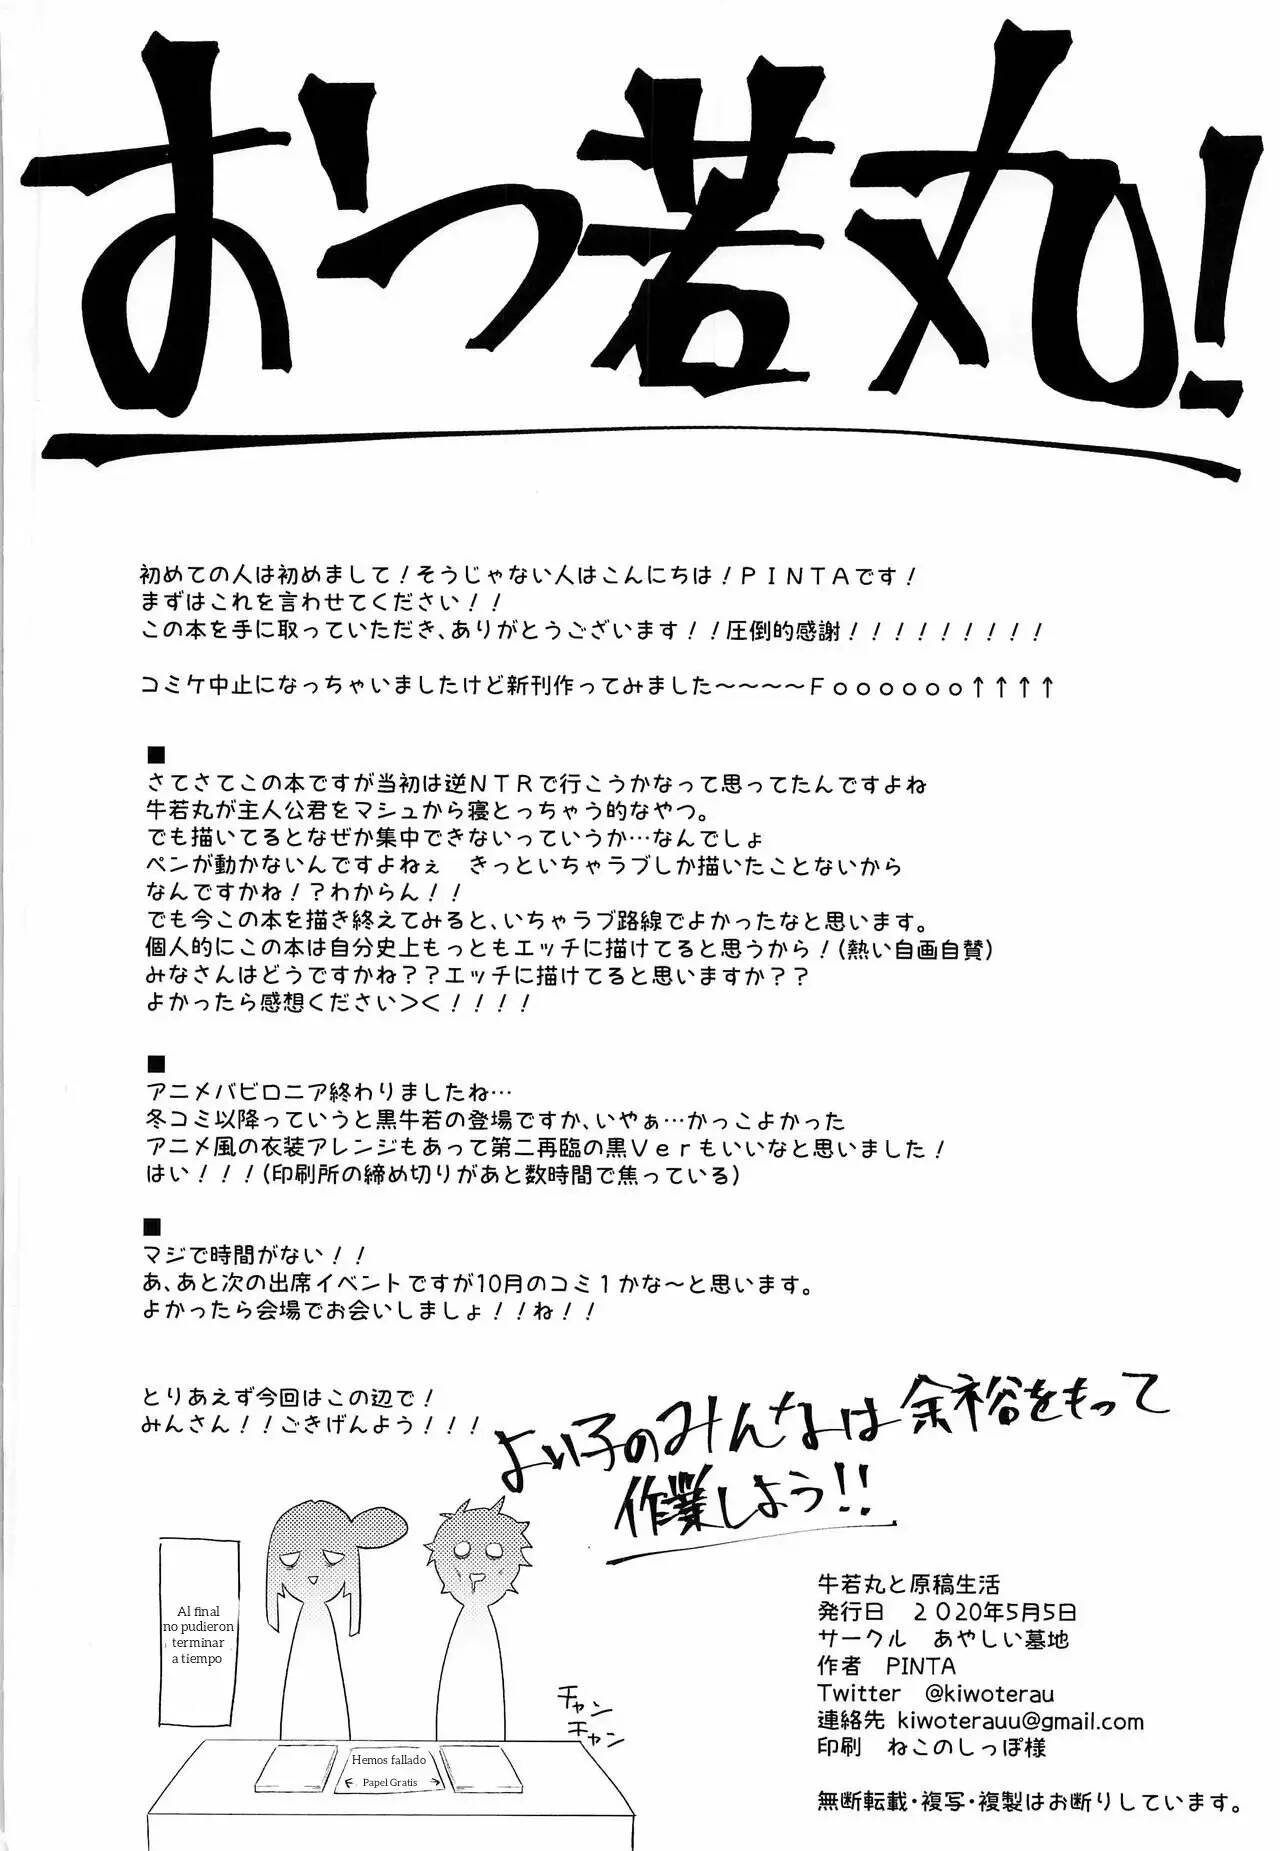 おつ若丸!
初めての人は初めまして!そうじゃない人はこんにちは!PINTAです!
まずはこれを言わせてください!!
この本を手に取っていただき、ありがとうございます!!圧倒的感謝!!!!!!!!!
コミケ中止になっちゃいましたけど新刊作ってみました~~~~Foooooo↑↑↑↑
■
さてさてこの本ですが当初は逆NTRで行こうかなって思ってたんですよね
牛若丸が主人公君をマシュから寝とっちゃう的なやつ。
でも描いてるとなぜか集中できないっていうか…なんでしょ
ペンが動かないんですよねぇ きっといちゃラブしか描いたことないから
なんですかね!?わからん!!
でも今この本を描き終えてみると、いちゃラブ路線でよかったなと思います。
個人的にこの本は自分史上もっともエッチに描けてると思うから!(熱い自画自賛)
みなさんはどうですかね??エッチに描けてると思いますか??
よかったら感想ください><!!!!
■
アニメバビロニア終わりましたね…
冬コミ以降っていうと黒牛若の登場ですか、いやぁ…かっこよかった
アニメ風の衣装アレンジもあって第二再臨の黒Verもいいなと思いました!
はい!!!(印刷所の締め切りがあと数時間で焦っている)
■
マジで時間がない!!
あ、あと次の出席イベントですが10月のコミ1かな~と思います。
よかったら会場でお会いしましょ!!ね!!
とりあえず今回はこの辺で!
みんさん!!ごきげんよう!!!
よい子のみんなは余裕をもって
作業しよう!!
Al final
no pudieron
terminar
a tiempo
チャン
チャン
Hemos fallado
← Papel Gratis →
牛若丸と原稿生活
発行日 2020年5月5日
サークル あやしい墓地
作者 PINTA
Twitter @kiwoterau
連絡先 kiwoterauu@gmail.com
印刷 ねこのしっぽ様
無断転載・複写・複製はお断りしています。